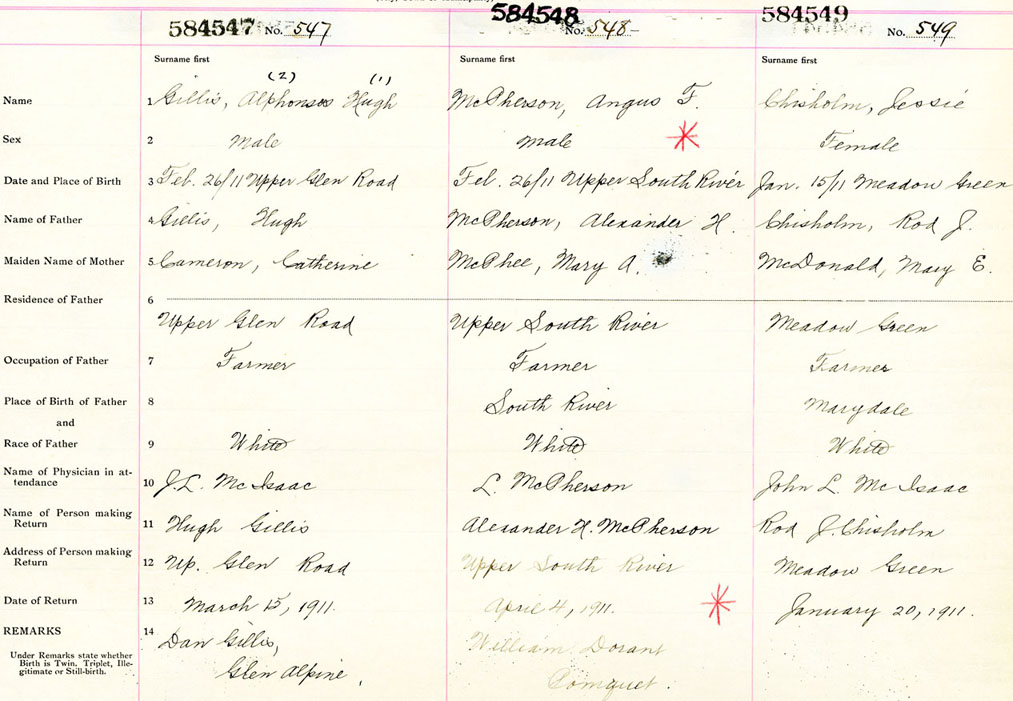 584547 No. 547 584548 No. 548- 584549 No. 549
Surname first Surname first Surname first
(2) (1)
Name 1 Gillis, Alphonsos Hugh McPherson, Angus F. Chisholm, Jessie
Sex 2 Male Male Female
Date and Place of Birth 3 Feb. 26/11 Upper Glen Road Feb. 26/11 Upper South River Jan. 15/11 Meadow Green
Name of Father 4 Gillis, Hugh McPherson, Alexander H. Chisholm, Rod J.
Maiden Name of Mother 5 Cameron, Catherine McPhee, Mary A. McDonald, Mary E.
Residence of Father 6
Upper Glen Road Upper South River Meadow Green
Occupation of Father 7 Farmer Farmer Farmer
Place of Birth of Father 8 South River Marydale
and
Race of Father 9 White White White
Name of Physician in at-
tendance 10 J.L. McIsaac L. McPherson John L. McIsaac
Name of Person making
Return 11 Hugh Gillis Alexander H. McPherson Rod J. Chisholm
Address of Person making
Return 12 Up. Glen Road Upper South River Meadow Green
Date of Return 13 March 15, 1911. April 4, 1911. January 20, 1911.
REMARKS 14 Dan Gillis, William Dorant
Under Remarks state whether
Birth is Twin, Triplet, Ille-
gitimate or Still-birth. Glen Alpine, Pomquet.